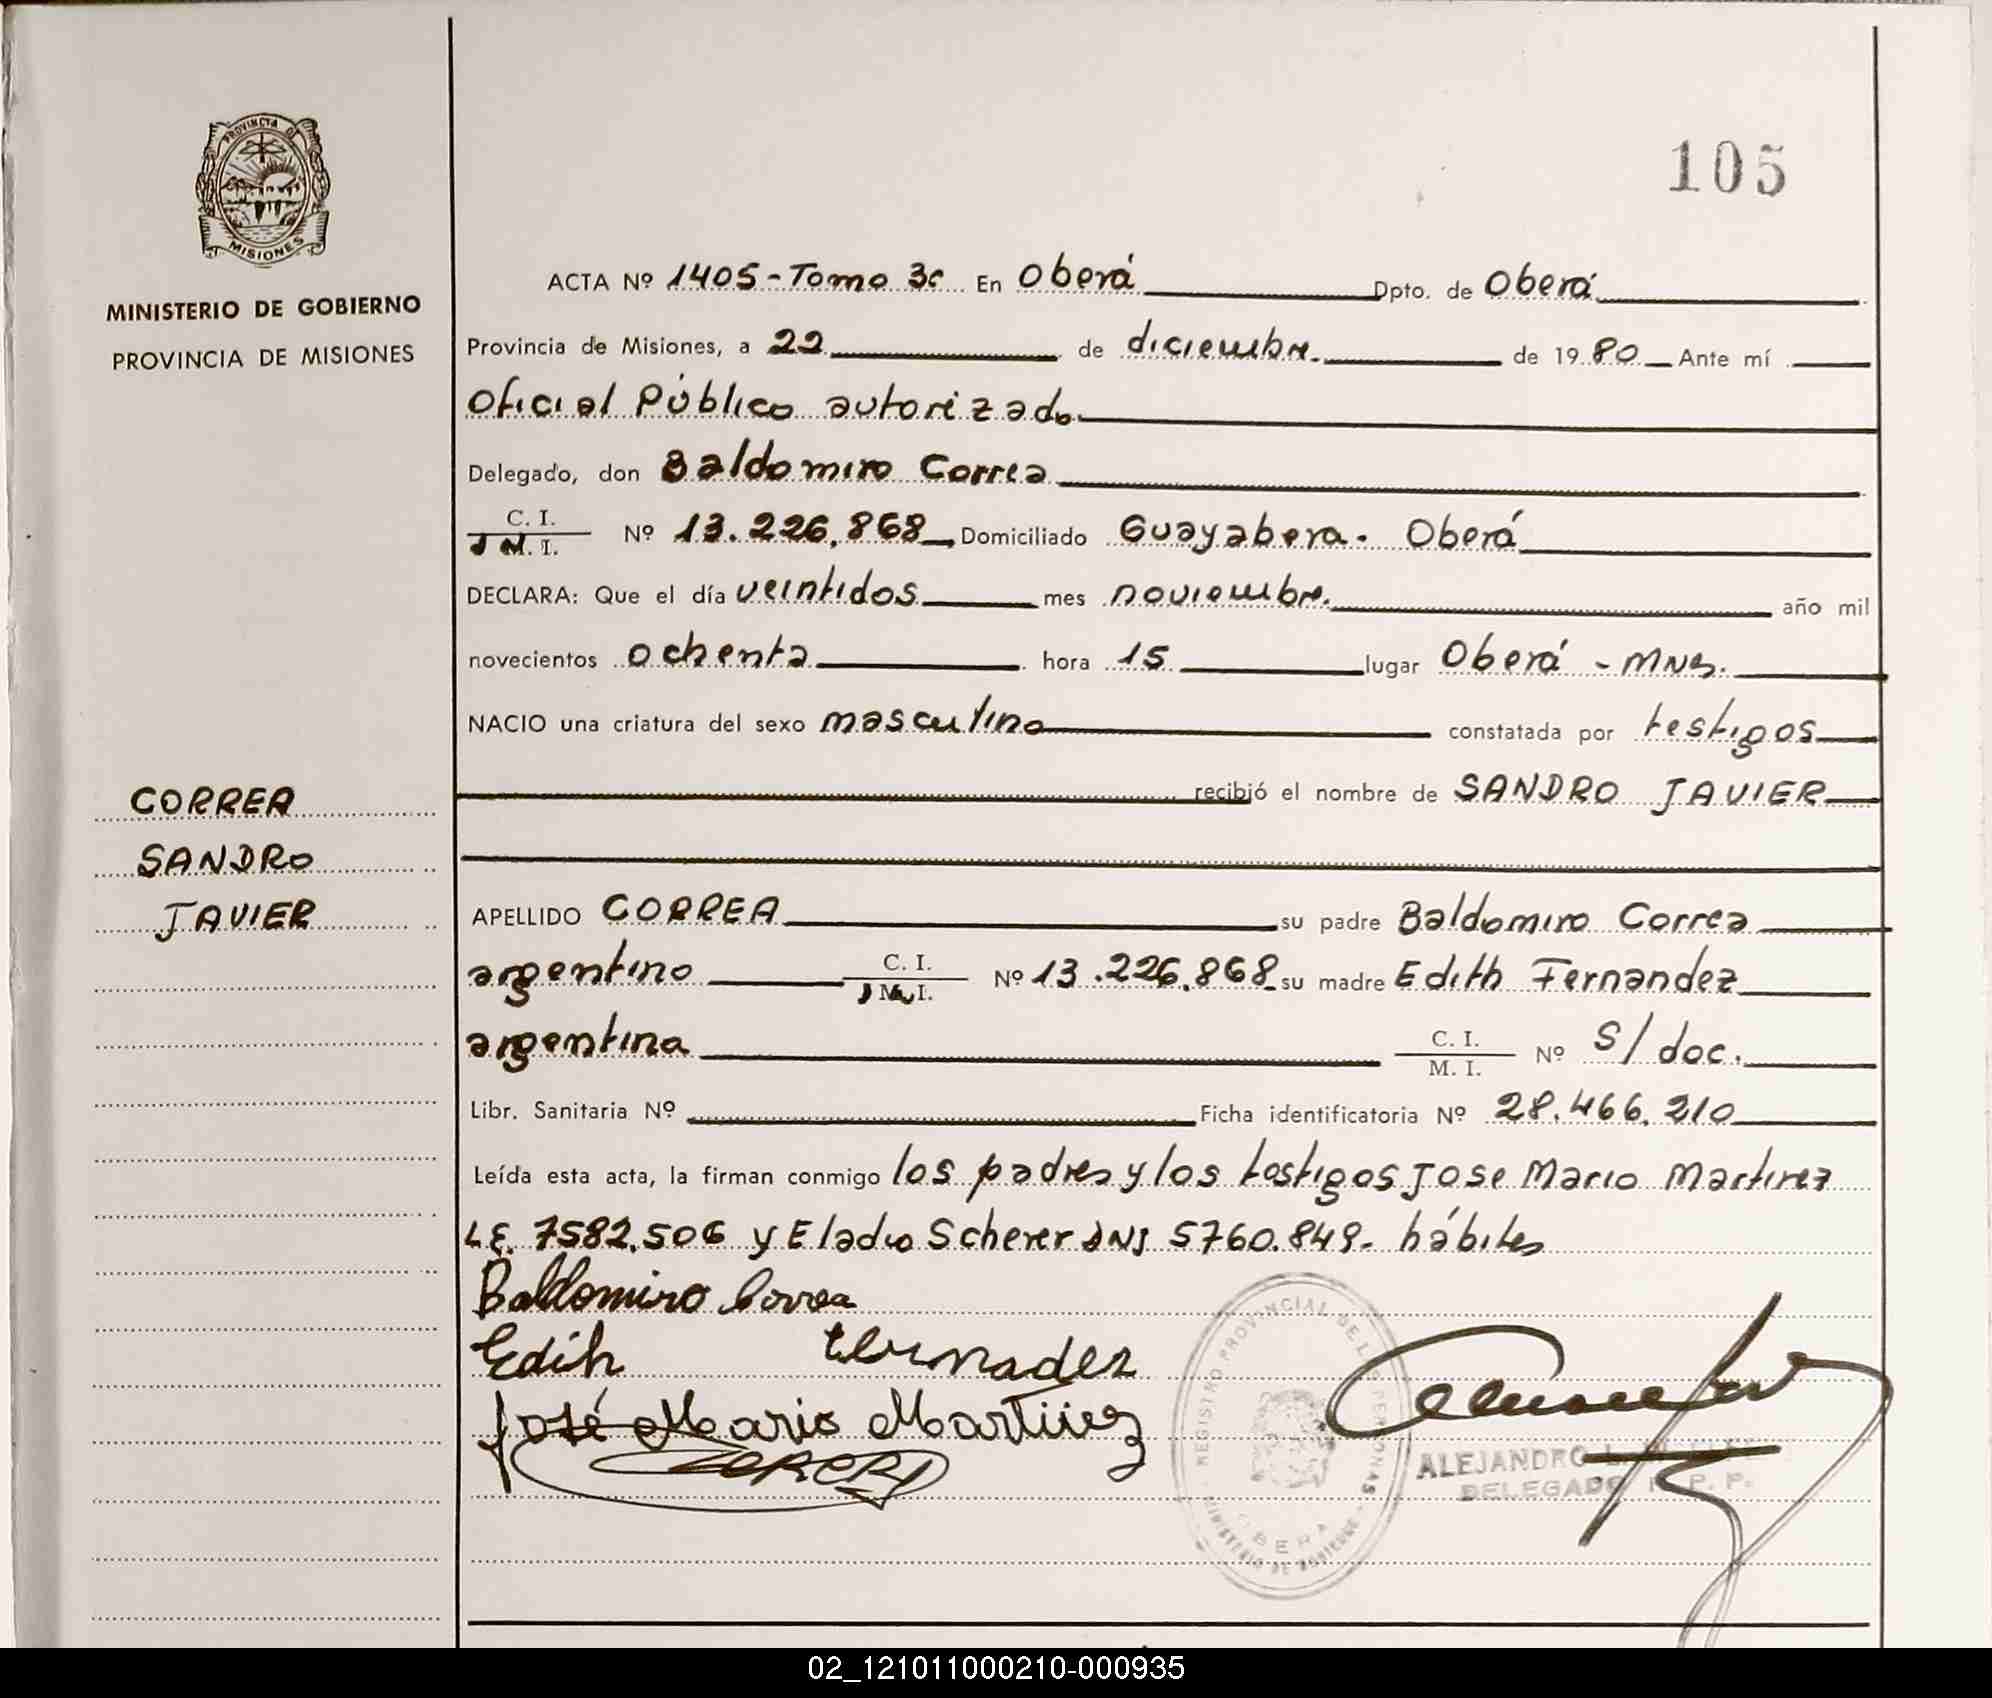 105
PROVINCIA DE
MISIONES
MINISTERIO DE GOBIERNO
PROVINCIA DE MISIONES
CORREA
SANDRO
JAVIER
ACTA Nº 1405-Tomo 3c En Oberá Dpto. de Oberá
Provincia de Misiones, a 22 de diciembre. de 1980 Ante mí
Oficial Público autorizado
Delegado, don Baldomiro Correa
C. I. / M. I. Nº 13.226.868 Domiciliado Guayabera. Oberá
DECLARA: Que el día veintidos mes noviembre. año mil
novecientos ochenta hora 15 lugar Oberá - MNS.
NACIO una criatura del sexo masculino constatada por testigos
recibió el nombre de SANDRO JAVIER
APELLIDO CORREA su padre Baldomiro Correa
argentino C. I. / M. I. Nº 13.226.868 su madre Edith Fernandez
argentina C. I. / M. I. Nº S/doc.
Libr. Sanitaria Nº Ficha identificatoria Nº 28.466.210
Leída esta acta, la firman conmigo los padres y los testigos Jose Mario Martinez
L.E. 7582.506 y Eladio Scherer DNI 5760.849. hábiles
Baldomiro Correa
Edith
José Mario Martinez
REGISTRO PROVINCIAL DE LAS PERSONAS
MINISTERIO DE GOBIERNO
OBERA
ALEJANDRO
DELEGADO R. P. P.
02_121011000210-000935